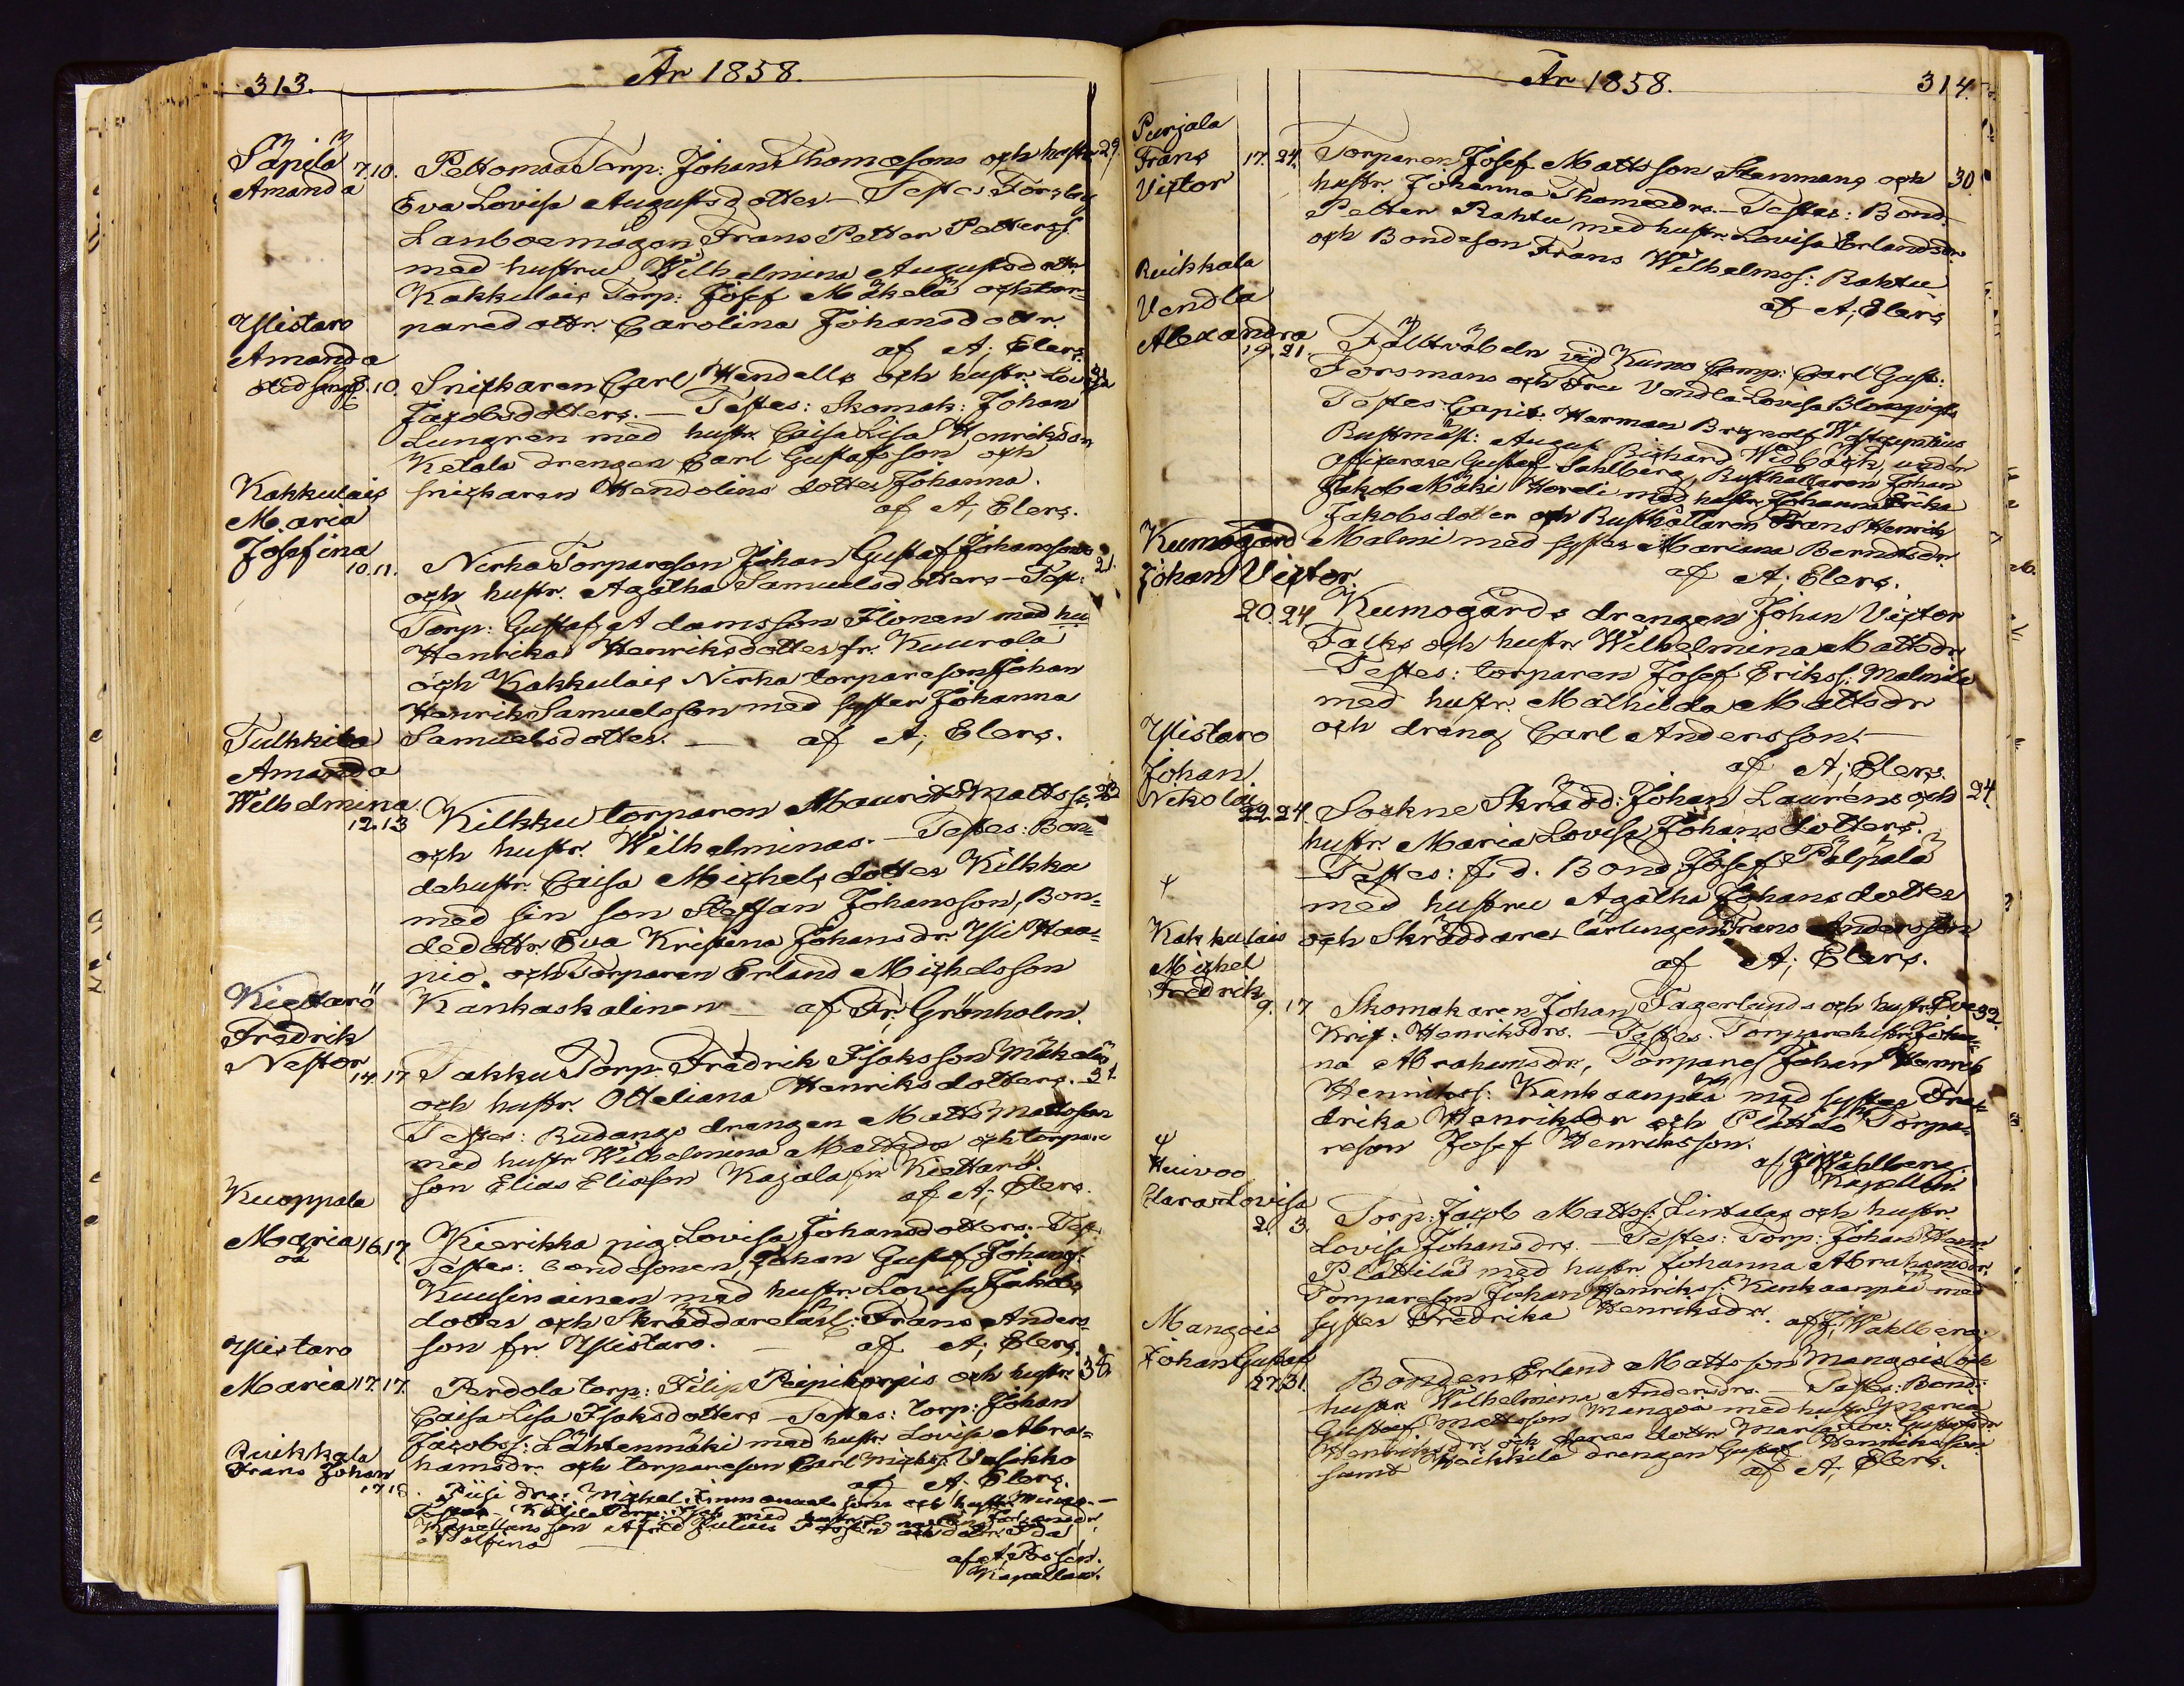 313.
År 1858.
Säpilä 7. 10. Peltomaa Torp: Johan Thomæsons och hustr 29.
Amanda
Eva Lovisa Augustsdotter – Testes: Forsby
Lanboemågen Frans Petter Petterss.
med hustru Wilhelmina Augustsdottr
Kakkulais Torp: Josef Mäkelä och tor=
Ylistaro
paredottr. Carolina Johansdottr.
af A; Elers.
Amanda
10. Snickaren Carl Wendells och hustr. Lovisa
Jacobsdotters. – Testes: Skomak: Johan
Lungren med hustr. Caisa Lisa Henriksdr
Ketala drengen Carl Gustafsson och
Kakkulais
snickaren Wendelins dotter Johanna.
af A; Elers.
Maria
Josefina
10. 11. Nirha Torpareson Johan Gustaf Johanssons 21.
och hustr. Agatha Samuelsdotters – Test:
Torp: Gustaf Adamsson Ilonen med hu
Henrika Henriksdotter fr. Kuurola
och Kakkulais Nirha torpareson Johan
Henrik Samuelsson med syster Johanna
Tulkkila
Samuelsdotter. – af A; Elers.
Amanda
Wilhelmina
12. 13 Kilkku torparen Maurits Matts
och hustr. Wilhelminas. – Testes: Bon=
dehustr. Caisa Michelsdotter Kilkku
med sin son Steffan Johansson, Bon=
dedottr. Eva Kristina Johansdr. Yli Haa=
pio. och Torparen Erland Michelsson
Kiettarö
Kankaskalinen – af Fr; Grönholm.
Fredrik
Nestor
14. 17 Takku Torp: Fredrik Isaksson Mäkeläs
och hustr. Otteliana Henriksdotters. 31.
Testes: Rudanço drengen Matts Mattsson
med hustr Wilhelmina Mattsdr och torpare
son Elias Eliasson Kajala fr Kiettarö.
af A; Elers.
Kuoppala
Maria 16. 17
oä
Kierikka pig. Lovisa Johansdotters. – Test.
Testes: bondesonen, Johan Gustaf Johanss.
Kuusinainen med hustr. Lovisa Jakobs
dotter och Skräddarelärl: Frans Anders
Ylistaro
son fr. Ylistaro. – af A; Elers.
Maria 17. 17.
Perdola torp: Filip Reipikorpis och hustr. 38.
Caisa Lisa Isaksdotters – Testes: torp: Johan
Jacobss: Lähtenmäki med hustr. Lovisa Abra=
Ruikkala
hamsdr. och torpareson Carl Michs: Uusikko
af A; Elers.
Frans Johan
17 18.
Piisi dre: Michel Emmanuelssons och hustr.
Kapellans son Alfred Julius och dottr. Ida
Adolfina
Kapellan.
År 1858.
314.
Purjala
Frans
Victor
17. 24. Torparen Josef Mattsson Stenmans och 30
hustr. Johanna Thomædrs. – Testes: Bond.
Petter Rahtu med hustr. Lovisa Erlandsdr
och Bondeson Frans Wilhelmss: Rahtu
af A; Elers
Ruikkala
Vendla
Alexandra
19. 21. Fältväbeln vid Kumo Comp: Carl Gust:
Forsmans och Fru Vendla Lovisa Blomqvists
Testes: Capit: Herman Brynolf
Rustmäst: August Richard Widbäck, under
officerare Gustaf Sahlberg, Rusthållaren Johan
Jakob Mäki Hordi med hustr. Johanna Erika
Jakobsdotter och Rusthållaren Frans Henrik
Malmi med syster Mariana Berndtsdr.
af A; Elers.
Kumogård
Johan Victor.
20. 24. Kumogårds drengen Johan Victor
Falks och hustr. Wilhelmina Mattsdr
– Testes: torparen Josef Erikss: Malmila
med hustr. Mathilda Mattsdr
och dreng Carl Andersson. –
af A; Elers.
Ylistaro
Johan
Nikolai
22. 24. Sockne Skrädd: Johan Lauréns och 24.
hustr. Maria Lovisa Johansdotters.
– Testes: f. d. Bond Josef Pälpälä
med hustru Agatha Johansdotter
och Skräddare lärlingen Frans Andersson
af A; Elers.
Kakkulais
Michel
Fredrik
9. 17 Skomakaren Johan Fagerlunds och hustr. Eva 32.
Krist: Henriksdrs. – Testes: Torparehustr. Johan=
na Abrahamsdr, Torpares Johan Henrik
Henrikss: Kankaanpää med syster Fre=
drika Henriksdr och Plättilä Torpa=
reson Josef Henriksson.
af Wahlberg.
Kapellan.
Huivoo
Clara Lovisa
2. 3. Torp: Jacob Mattss: Lintalas och hustr.
Lovisa Johansdrs. – Testes: Torp: Johan Henr
Plättilä med hustr. Johanna Abrahamsdr.
Torpareson Johan Henrikss: Kankaanpää med
syster Fredrika Henriksdr. af J; Wahlberg.
Mangois
Johan Gustaf
27. 31. Bonden Erland Mattsson Mangois och
hustr Wilhelmina Andersdrs. – Testes: Bond:
Gustaf Mattsson Mangois med hustr Maria
Henriksdr. och deras dottr. Maria Lov: Gustafsdr
samt Heikkilä drengen Gustaf Henriksson
af A; Elers.